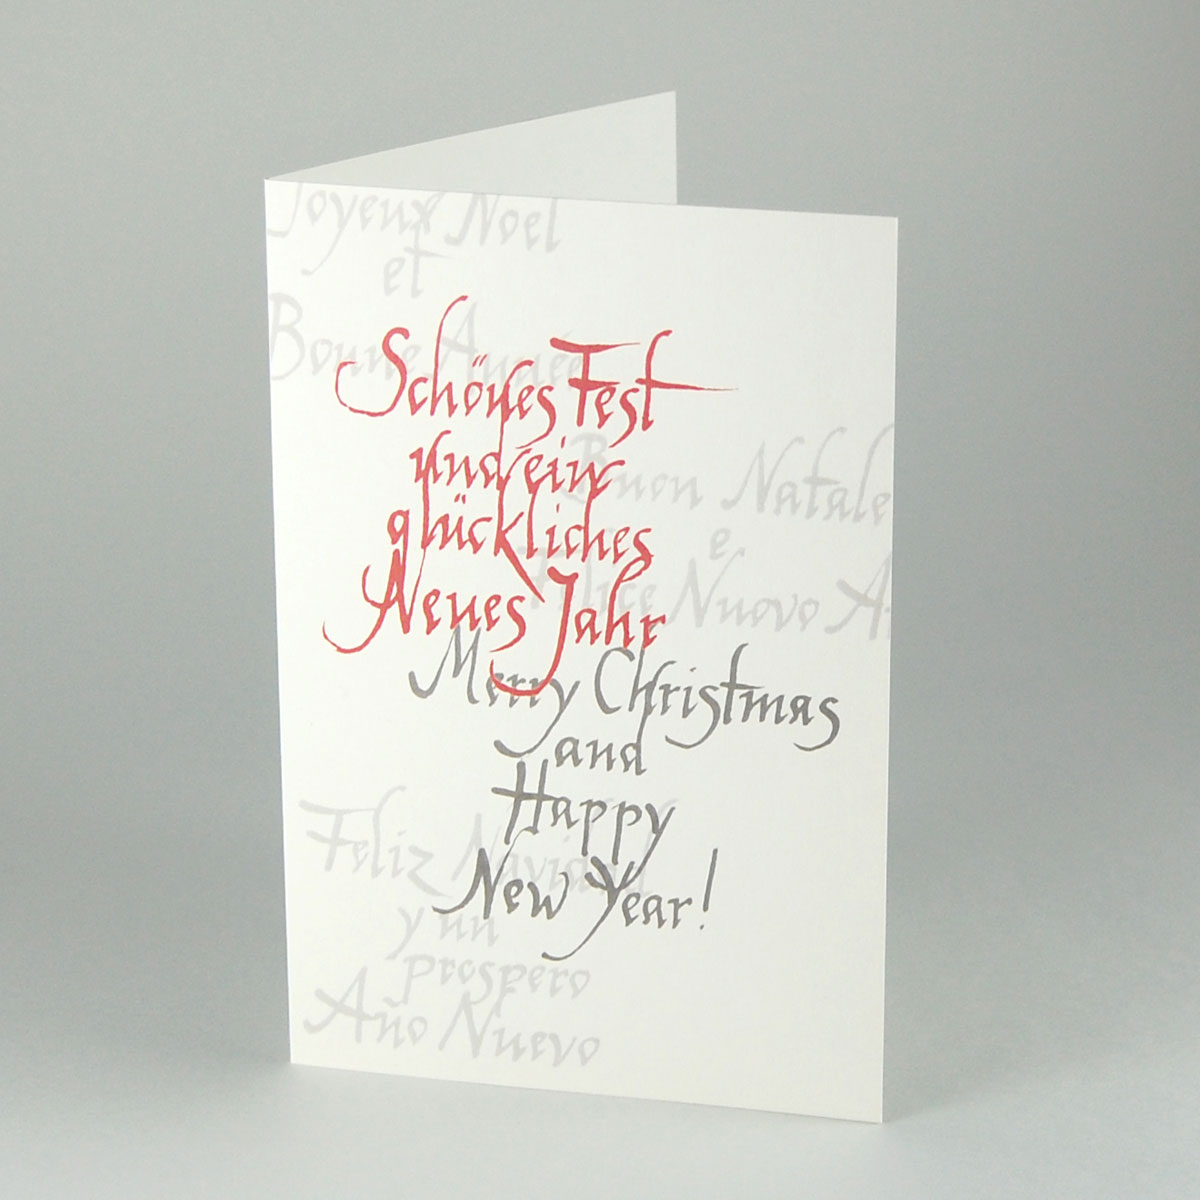 Joyeux Noel
et
Bonne Année
Schönes Fest
und ein
glückliches
Neues Jahr
Buon Natale
e
Felice Nuovo A
Merry Christmas
and
Happy
New Year!
Feliz Navidad
y un
prospero
Año Nuevo